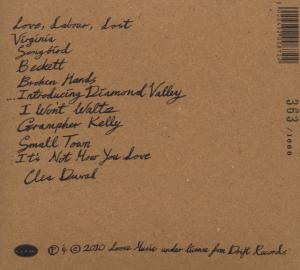 Love, Labour, Lost
Virginia
Songbird
Beckett
Broken Hands
Introducing Diamond Valley
I Won't Waltz
Grampher Kelly
Small Town
It's Not How You Love
Cles Duval
363/1000
℗ & © 2010 Loose Music under licence from Drift Records